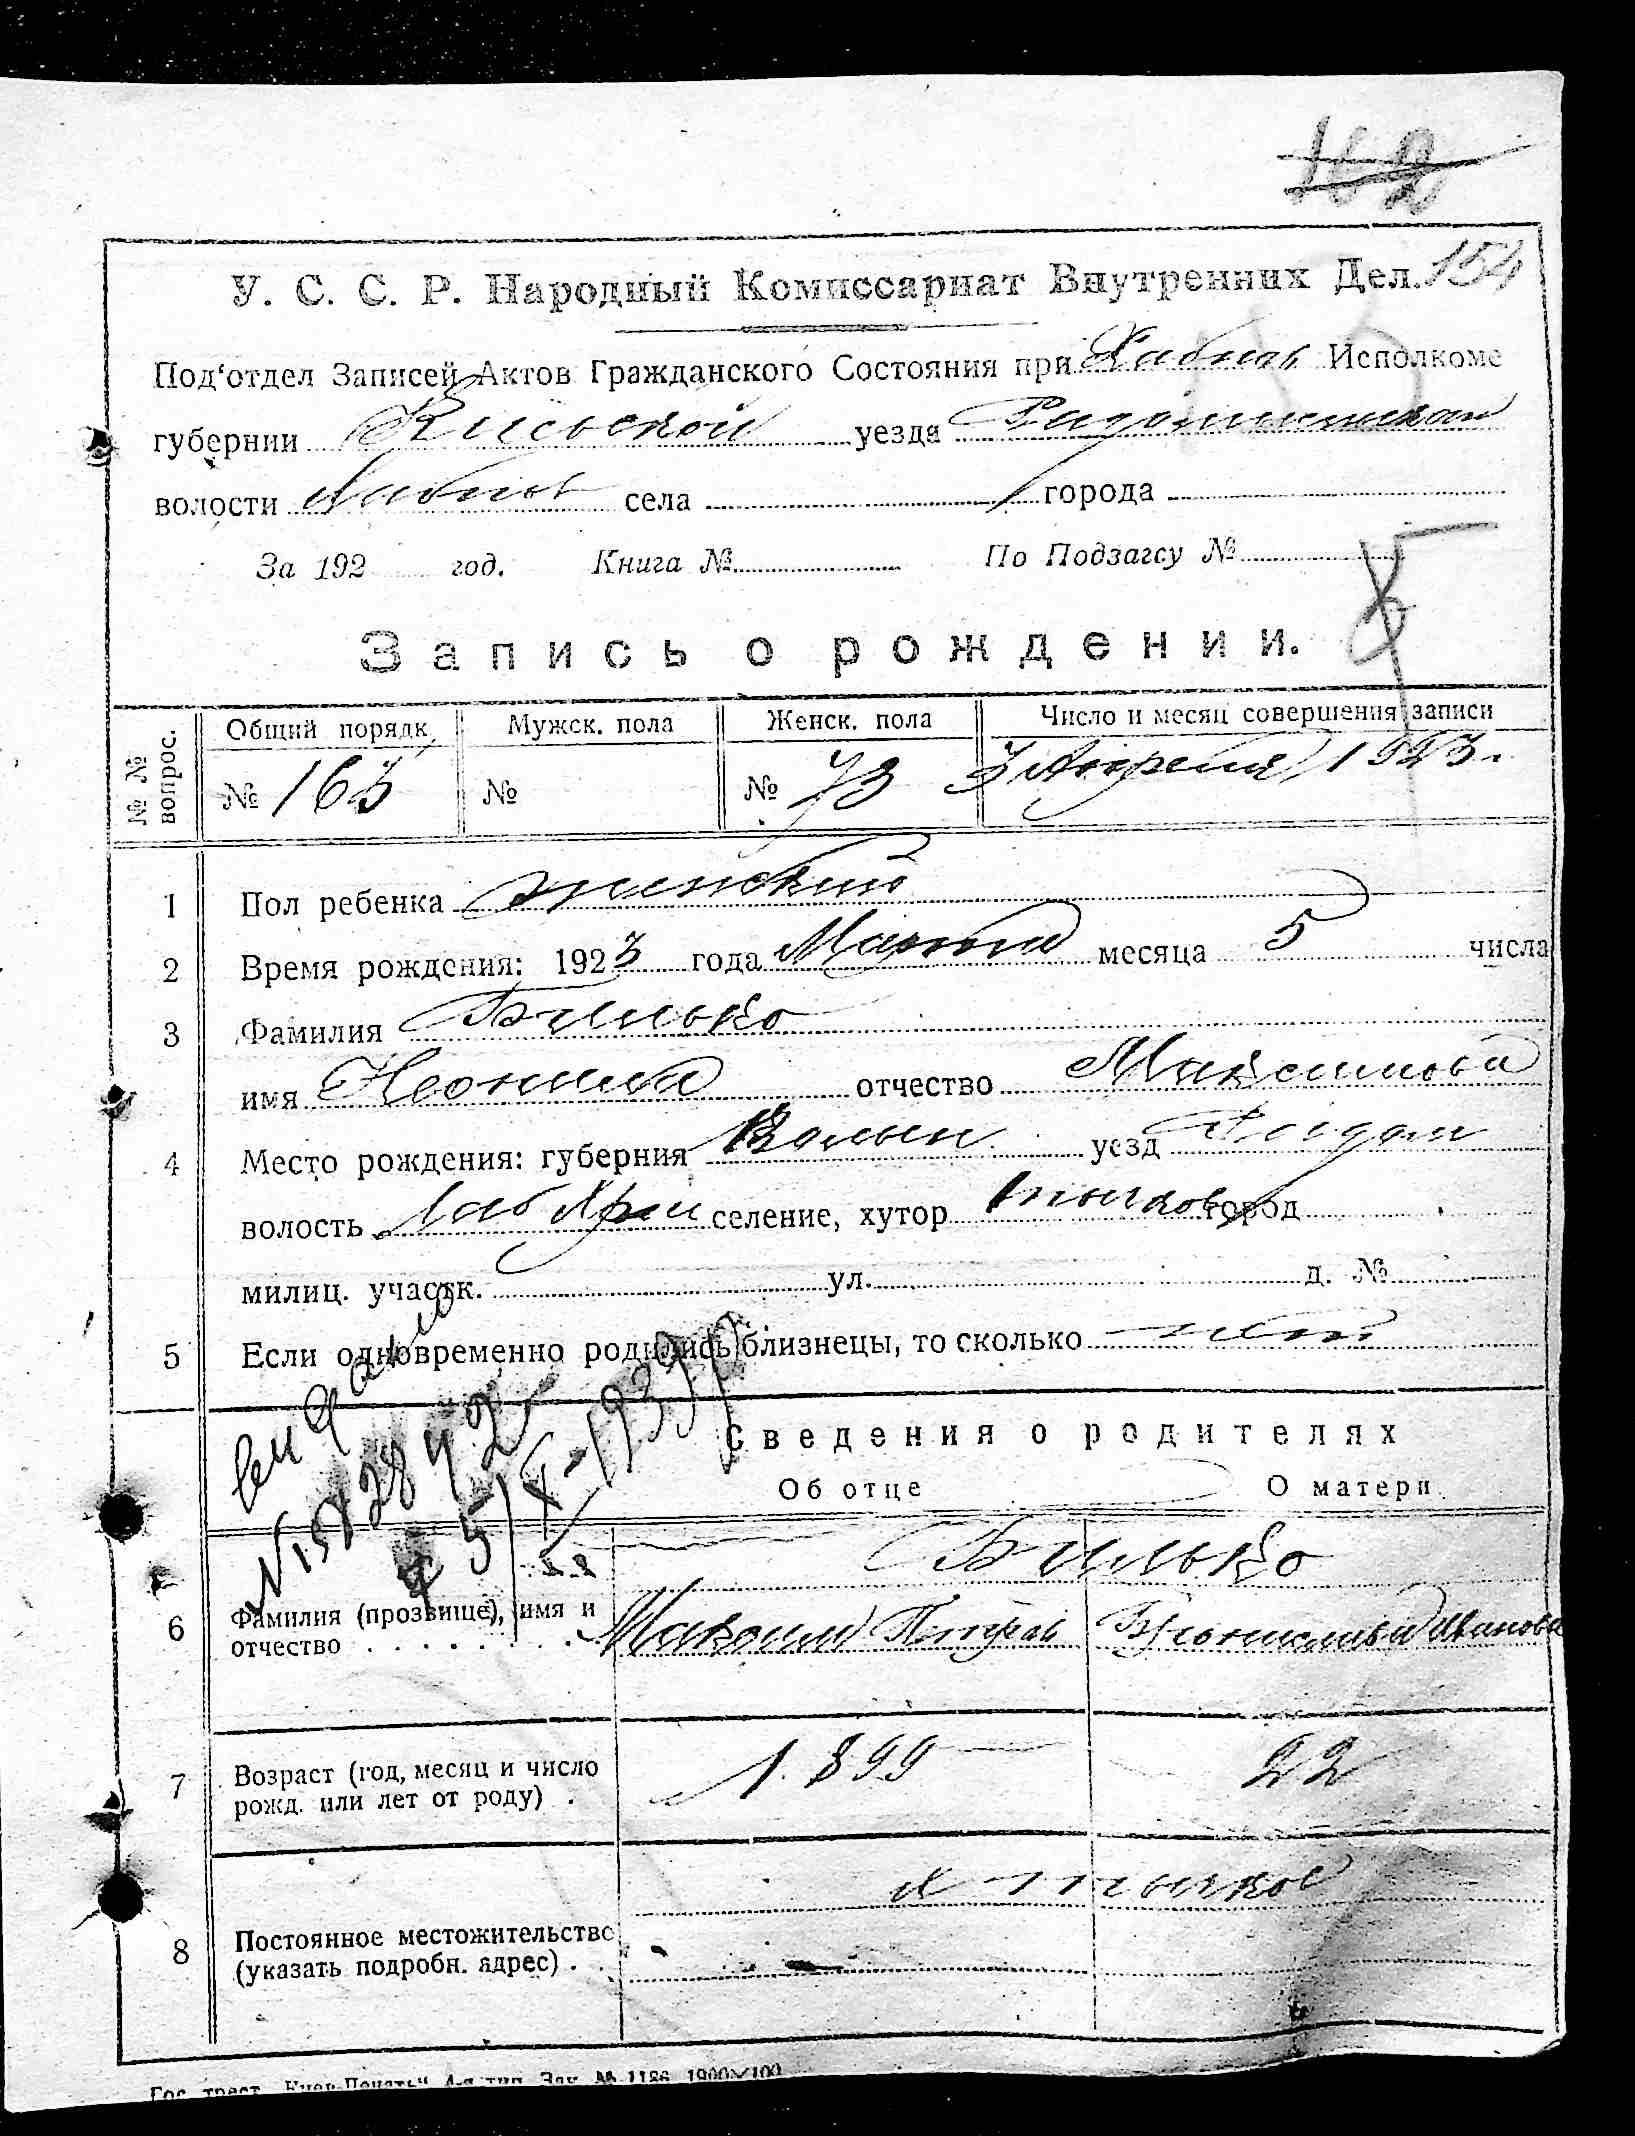 162
У. С. С. Р. Народный Комиссариат Внутренних Дел. 154
Под‘отдел Записей Актов Гражданского Состояния при Хабнов Исполкоме
губернии Киевской уезда
волости Хабнов села города
За 192 год. Книга № По Подзагсу №
Запись о рождении.
№ № вопрос.
Общий порядк. Мужск. пола Женск. пола Число и месяц совершения записи
№ 163 № № 73 3 Апреля 1923.
1 Пол ребенка женский
2 Время рождения: 1923 года Марта месяца 5 числа
3 Фамилия Билько
имя Неонила отчество Максимова
4 Место рождения: губерния Волын уезд
волость селение, хутор город
милиц. участк. ул. д. №
5 Если одновременно родились близнецы, то сколько нет
Сведения о родителях
Об отце О матери
Билько
6 Фамилия (прозвище), имя и
отчество Максим Петров Бронислава Иванова
7 Возраст (год, месяц и число
рожд. или лет от роду) . 1899 22
8 Постоянное местожительство
(указать подробн. адрес) . .